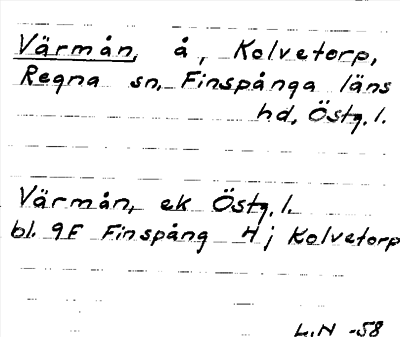 Värmån, å, Kolvetorp,
Regna sn, Finspånga läns
hd, Östg. l.
Värmån, ek Östg. l.
bl. 9F Finspång 4 j Kolvetorp
L.N -58